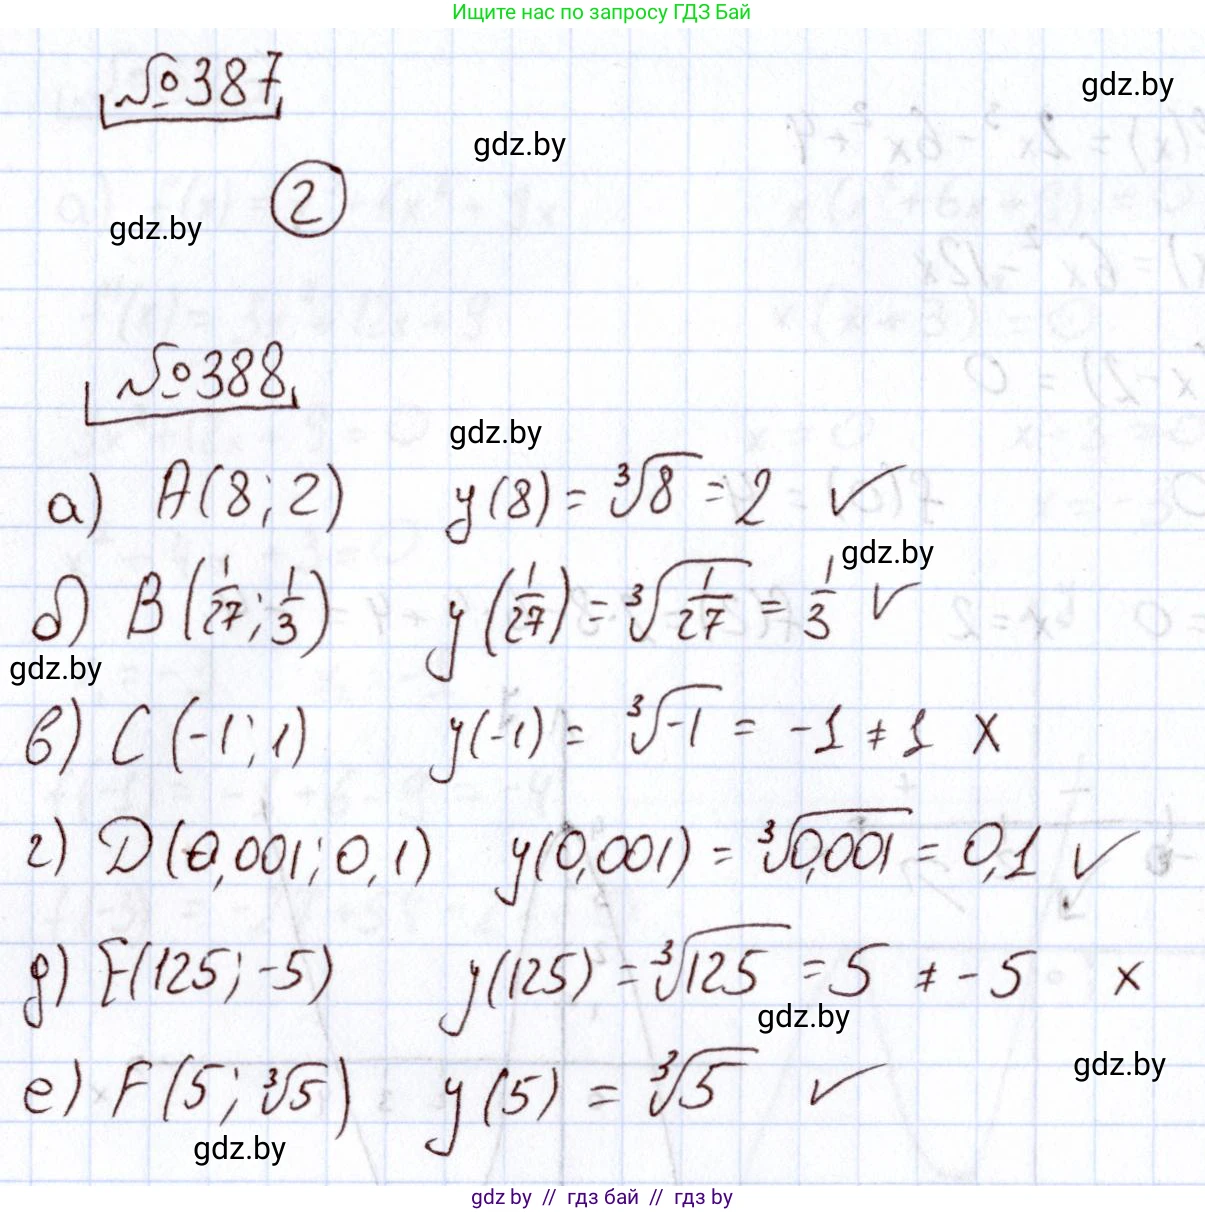 Ищите нас по запросу ГДЗ Бай
№387
gdz.by
gdz.by
2
gdz.by
№388
gdz.by
а) A(8; 2) y(8) = ∛8 = 2 ✓
gdz.by
б) B(1/27; 1/3) y(1/27) = ∛(1/27) = 1/3 ✓
gdz.by
в) C(-1; 1) y(-1) = ∛-1 = -1 ≠ 1 x
г) D(0,001; 0,1) y(0,001) = ∛0,001 = 0,1 ✓
д) E(125; -5) y(125) = ∛125 = 5 ≠ -5 x
gdz.by
gdz.by
е) F(5; ∛5) y(5) = ∛5 ✓
gdz.by
gdz by // гдз бай // гдз by